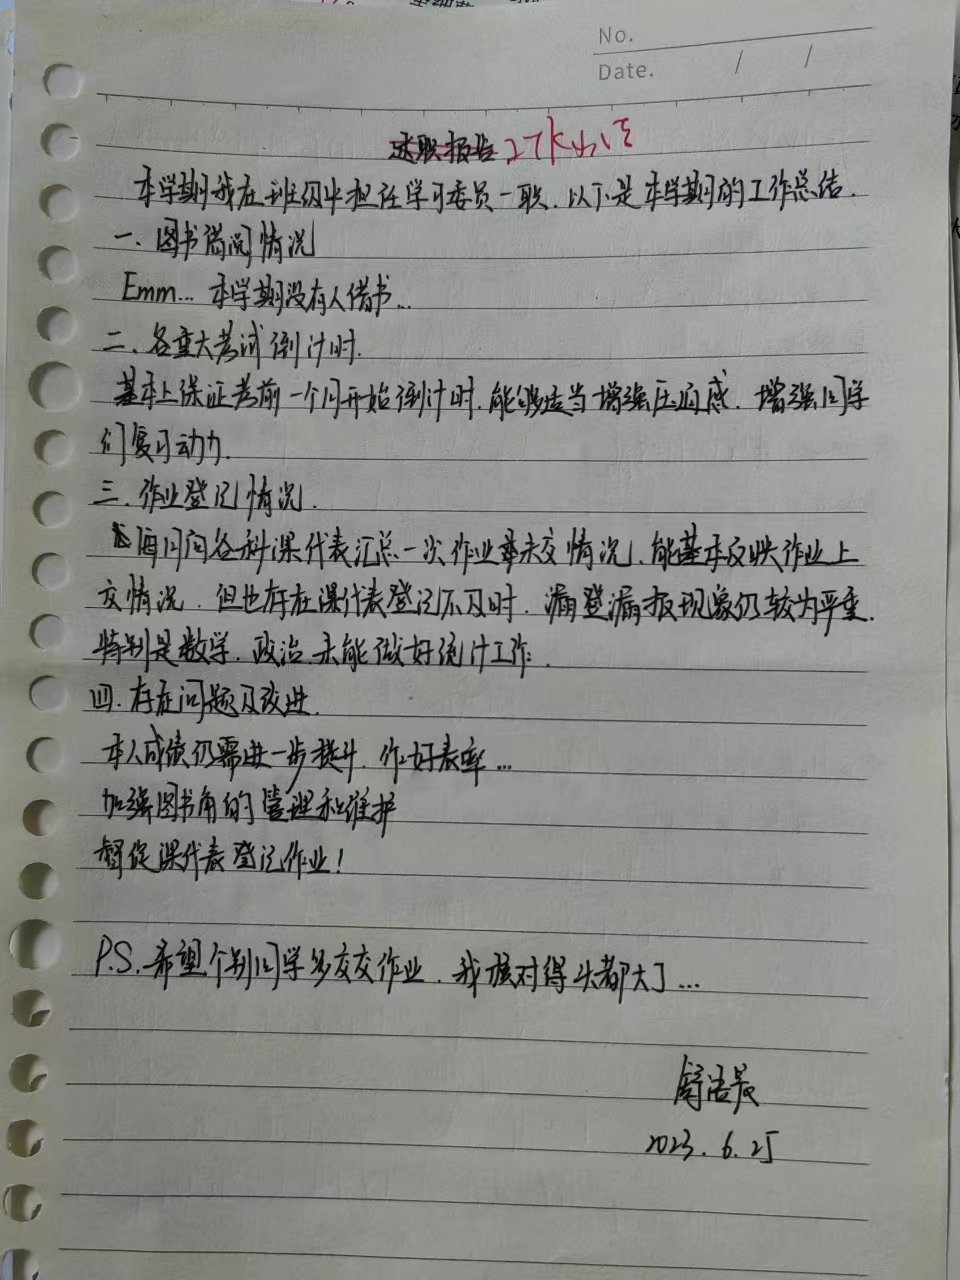 No.
Date. / /
述职报告 工作小结
本学期我在班级中担任学习委员一职，以下是本学期的工作总结.
一、图书借阅情况
Emm... 本学期没有人借书...
二、各重大考试倒计时.
基本上保证考前一个月开始倒计时，能够适当增强压迫感，增强同学
们复习动力.
三、作业登记情况.
每日向各科课代表汇总一次作业未交情况，能基本反映作业上
交情况，但也存在课代表登记不及时，漏登漏报现象仍较为严重.
特别是数学，政治未能做好统计工作.
四、存在问题及改进.
本人成绩仍需进一步提升，作好表率...
加强图书角的管理和维护
督促课代表登记作业!
P.S. 希望个别同学多交交作业，我核对得头都大了...
2023.6.25